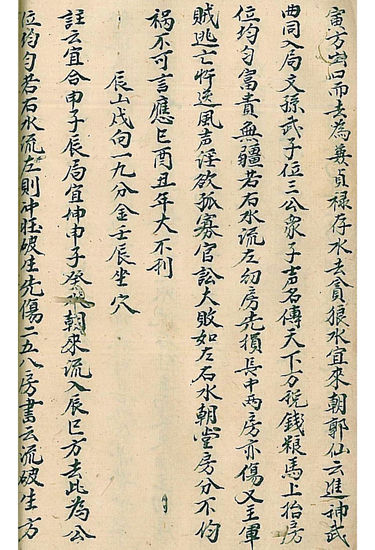 寅方宮口而去為蓑貞祿存水去貪狼水宜來朝郭仙云進神武
曲同入局文孫武子位三公衆子声名傳天下万稅錢粮馬上抬房
位均匀富貴無疆若右水流左幼房先損長中两房亦傷又主軍
賊逃亡忤送風声淫欲孤寡官訟大敗如左右水朝堂房分不均
禍不可言應巳酉丑年大不利
辰山戌向一九分金壬辰坐穴
註云宜合申子辰局宜坤申子癸朝來流入辰巳方去此為公
位均匀若右水流左則冲旺破生先傷二五八房書云流破生方